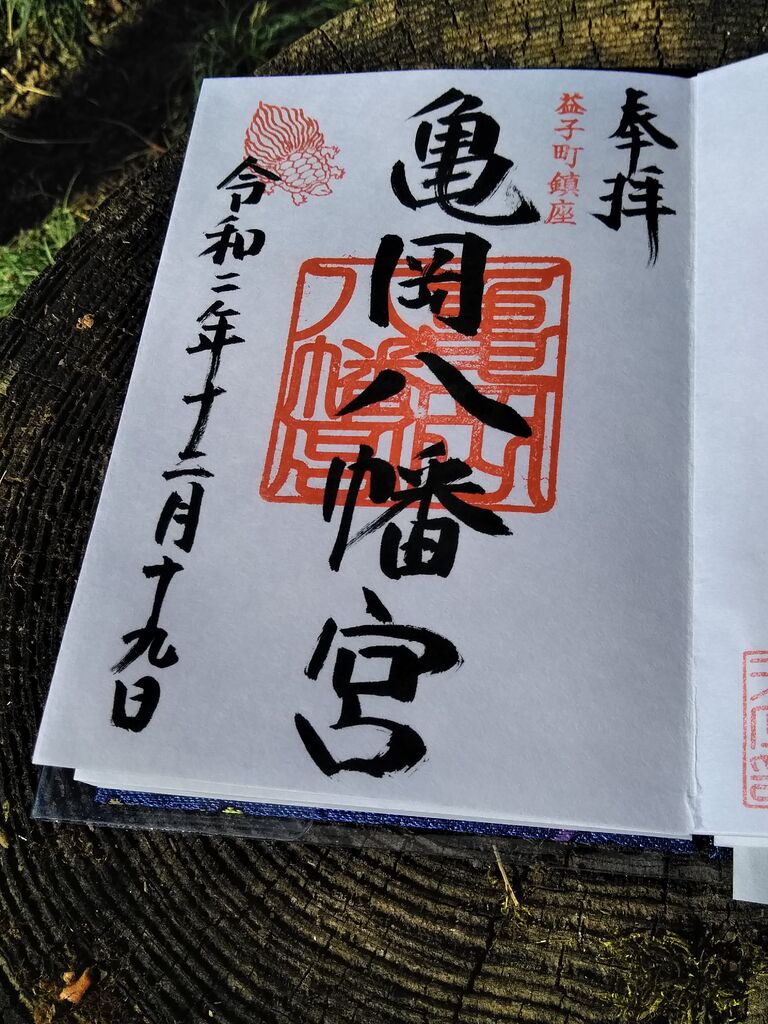 奉拝
益子町鎮座
亀岡八幡宮
令和二年十二月十九日